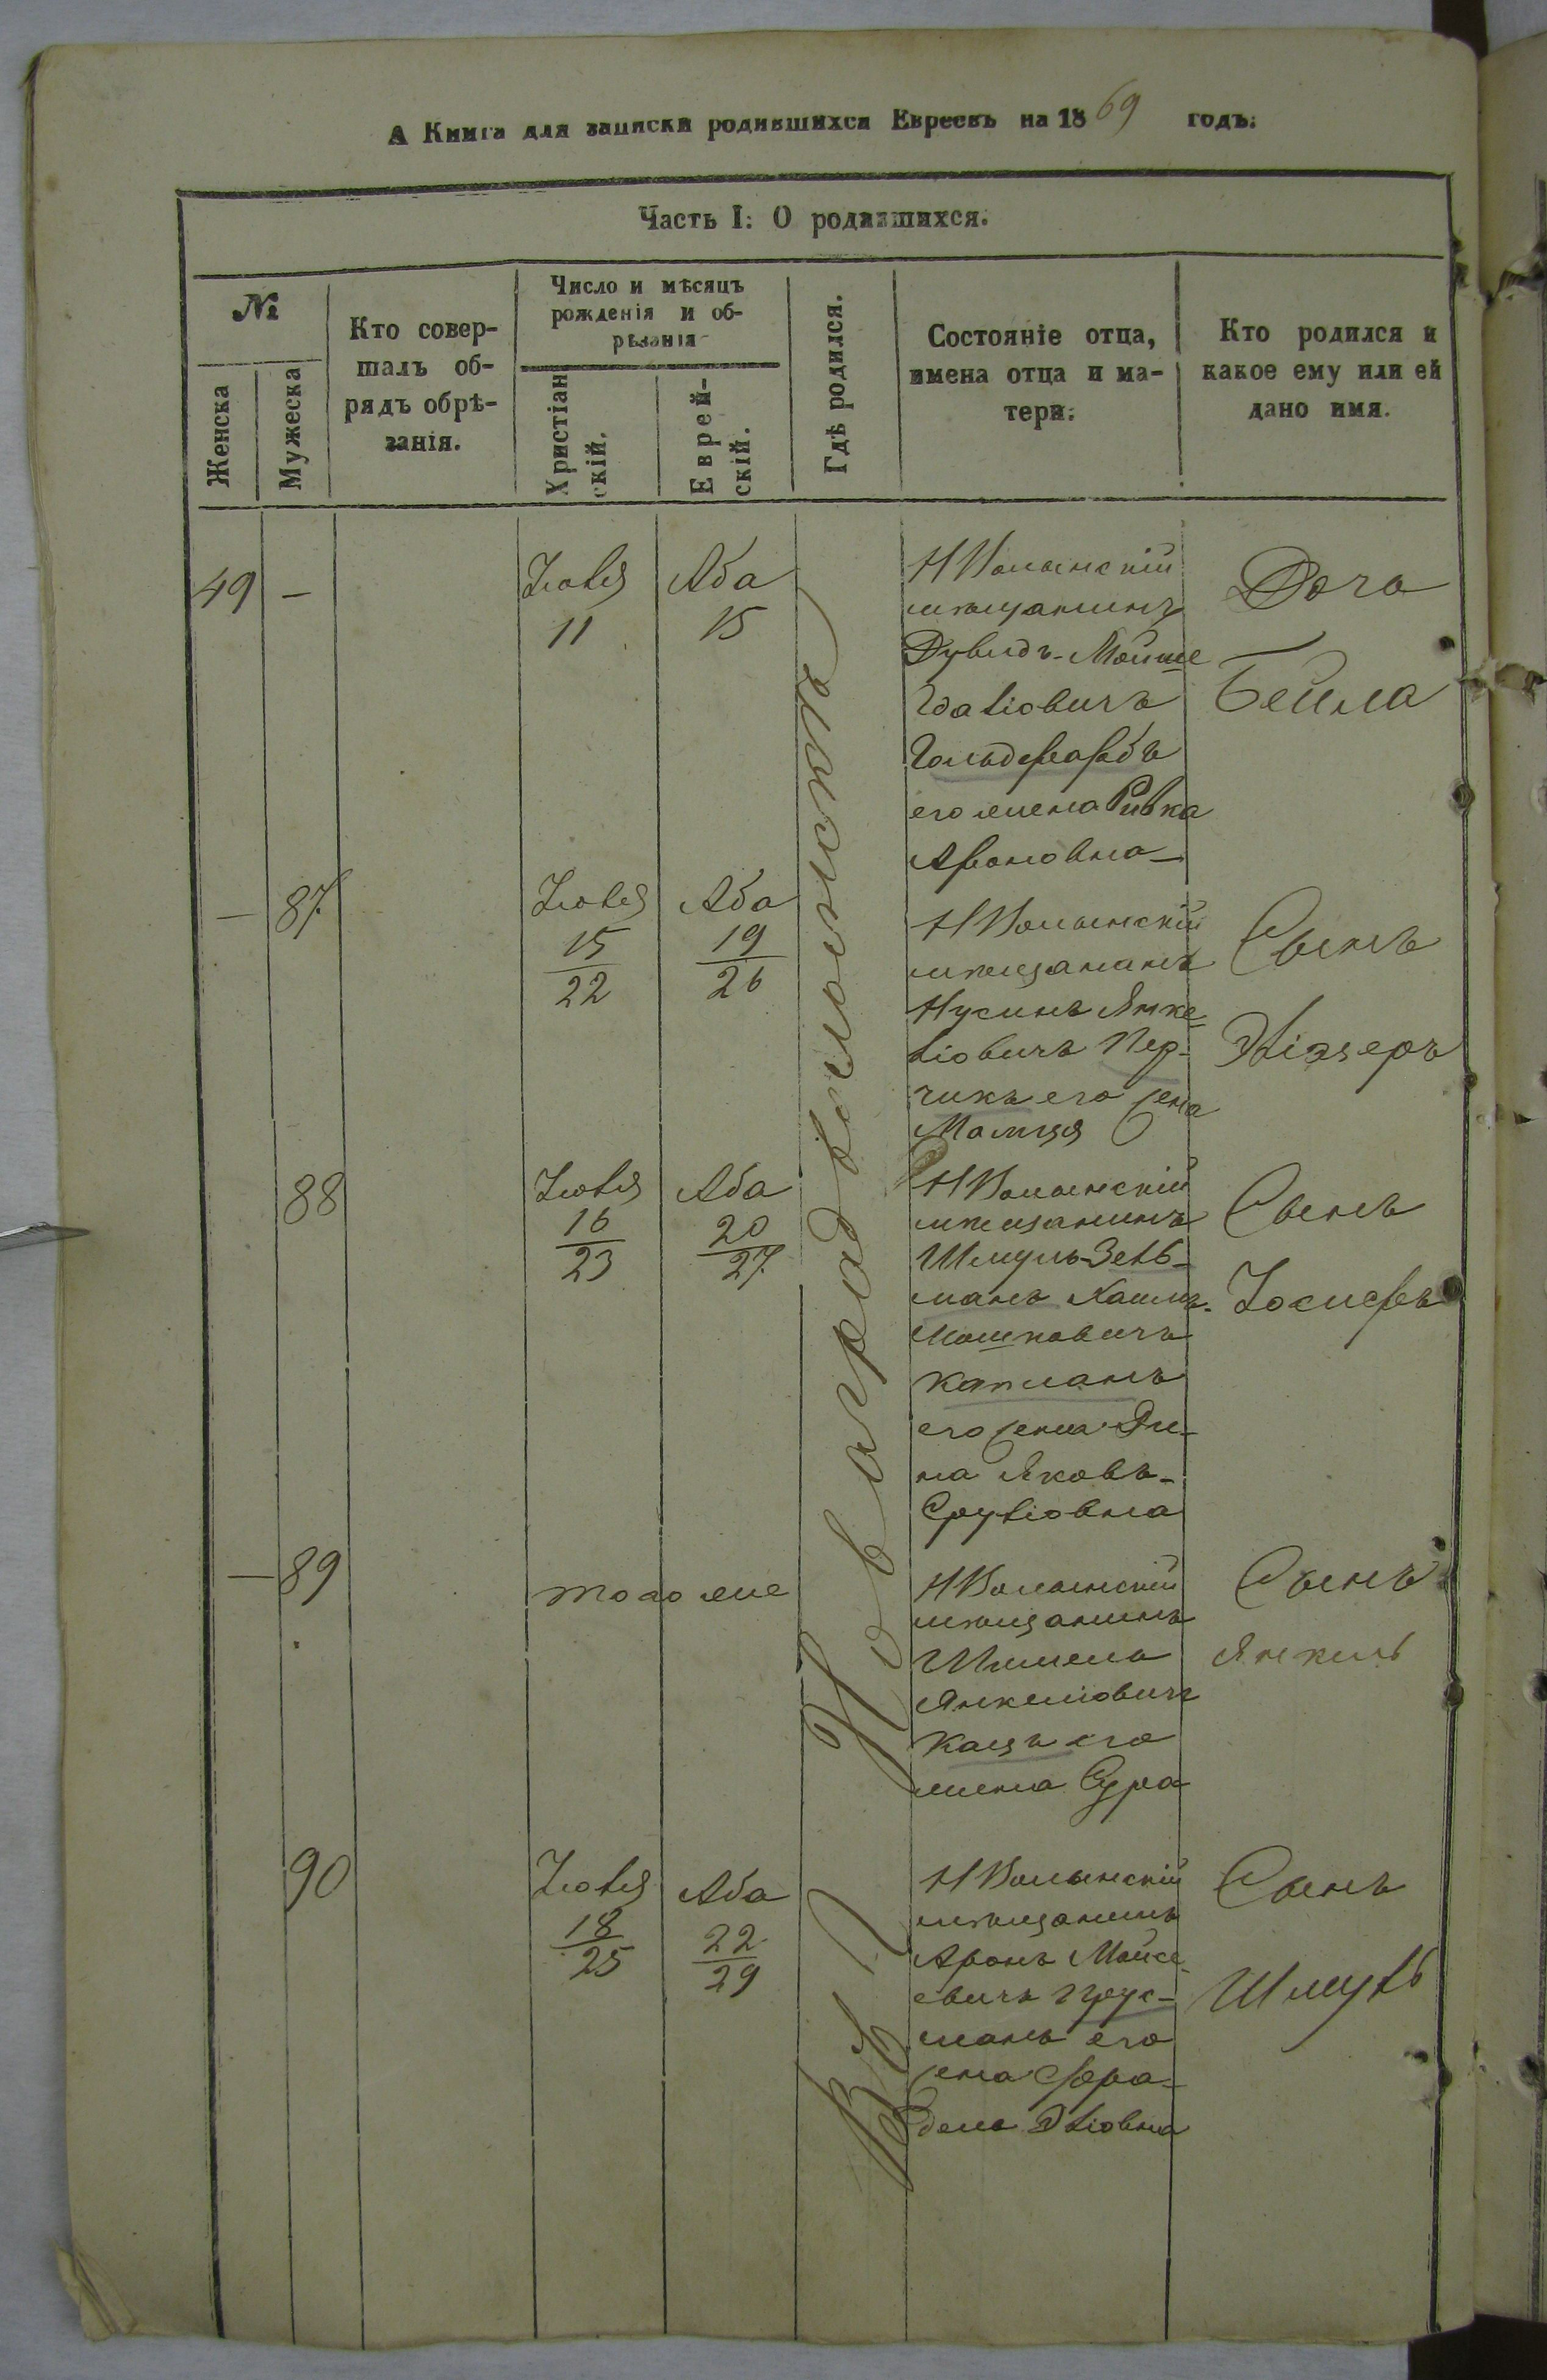 А Книга для записки родившихся Евреевъ на 1869 годъ.
Часть I. О родившихся.
№
Женска
Мужеска
Кто совер-
шалъ об-
рядъ обрѣ-
занія.
Число и мѣсяцъ
рожденія и об-
рѣзанія
Христіан
скій.
Еврей-
скій.
Гдѣ родился.
Состояніе отца,
имена отца и ма-
тери.
Кто родился и
какое ему или ей
дано имя.
Въ г. Новоградволынскѣ
49 —
Іюля
11
Аба
15
НВолынскій
мѣщанинъ
Дувидъ-Мойше
Гольдфарбъ
его жена Ривка
Ароновна
Дочь
Бейла
— 87
Іюля
15
22
Аба
19
26
НВолынскій
мѣщанинъ
Нусинъ Янке-
ліовичъ Пер-
чикъ его жена
Малця
Сынъ
Эліэзеръ
88
Іюля
16
23
Аба
20
27
НВолынскій
мѣщанинъ
Шмуль-Зель-
манъ Хаимъ-
Мошковичъ
Капланъ
его жена Ди-
на Яковъ-
Сруліовна
Сынъ
Іосифъ
— 89
того же
НВолынскій
мѣщанинъ
Янкеліовичъ
Кацъ его
жена Сура
Сынъ
Янкель
90
Іюля
18
25
Аба
22
29
НВолынскій
мѣщанинъ
Аронъ Мойсе-
евичъ
манъ его
жена Фра-
дель Эліовна
Сынъ
Шмуль